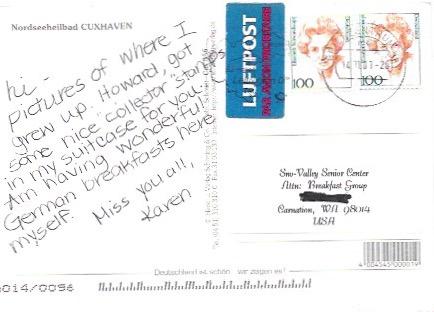 Nordseeheilbad CUXHAVEN
hi -
pictures of where I
grew up. Howard, got
some nice "collector" stamps
in my suitcase for you.
Am having wonderful
German breakfasts here
myself.
Miss you all,
Karen
LUFTPOST
PAR AVION/PRIORITAIRE
100
100
Sno-Valley Senior Center
Attn: Breakfast Group
Carnation, WA 98014
USA
4 004545 000019
Deutschland ist schön - wir zeigen es!
014/0096